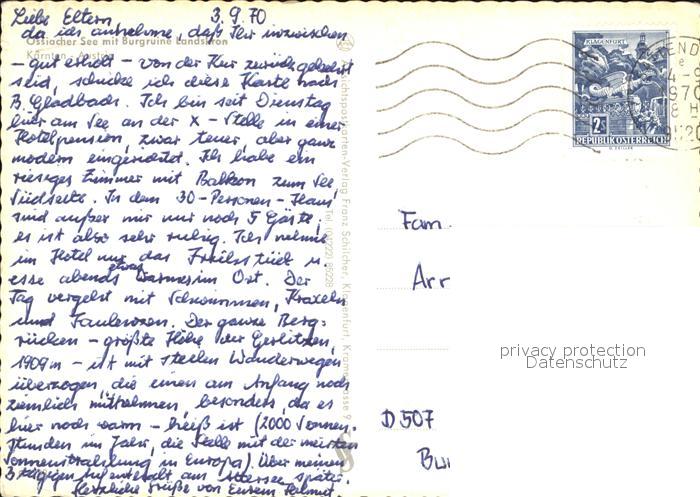 Liebe Eltern 3.9.70
da ich annehme, daß Ihr inzwischen
Ossiacher See mit Burgruine Landskron
Kärnten - Austria
- gut erholt - von der Kur zurückgekehrt
seid, schicke ich diese Karte nach
B. Gladbach. Ich bin seit Dienstag
hier am See an der X-Stelle in einer
Hotelpension, zwar teuer, aber ganz
modern eingerichtet. Ich habe ein
riesiges Zimmer mit Balkon zum See,
Südseite. In dem 30-Personen-Haus
sind außer mir nur noch 5 Gäste,
es ist also sehr ruhig. Ich nehme
im Hotel nur das Frühstück u.
esse abends etwas Warmes im Ort. Der
Tag vergeht mit Schwimmen, Kraxeln
und Faulenzen. Der ganze Berg-
rücken - größte Höhe der Gerlitzen,
1909 m - ist mit steilen Wanderwegen
überzogen, die einen am Anfang noch
ziemlich mitnehmen, besonders, da es
hier noch warm - heiß ist (2000 Sonnen-
stunden im Jahr, die Stelle mit der meisten
Sonnenstrahlung in Europa). Über meinen
3 tägigen Aufenthalt am Attersee später.
Herzliche Grüße von Eurem Helmut
Ansichtspostkarten-Verlag Franz Schilcher, Klagenfurt,
Tel. (04222) 85228
KLAGENFURT
2
REPUBLIK ÖSTERREICH
1970
Fam.
Arr
D 507
Bu
privacy protection
Datenschutz